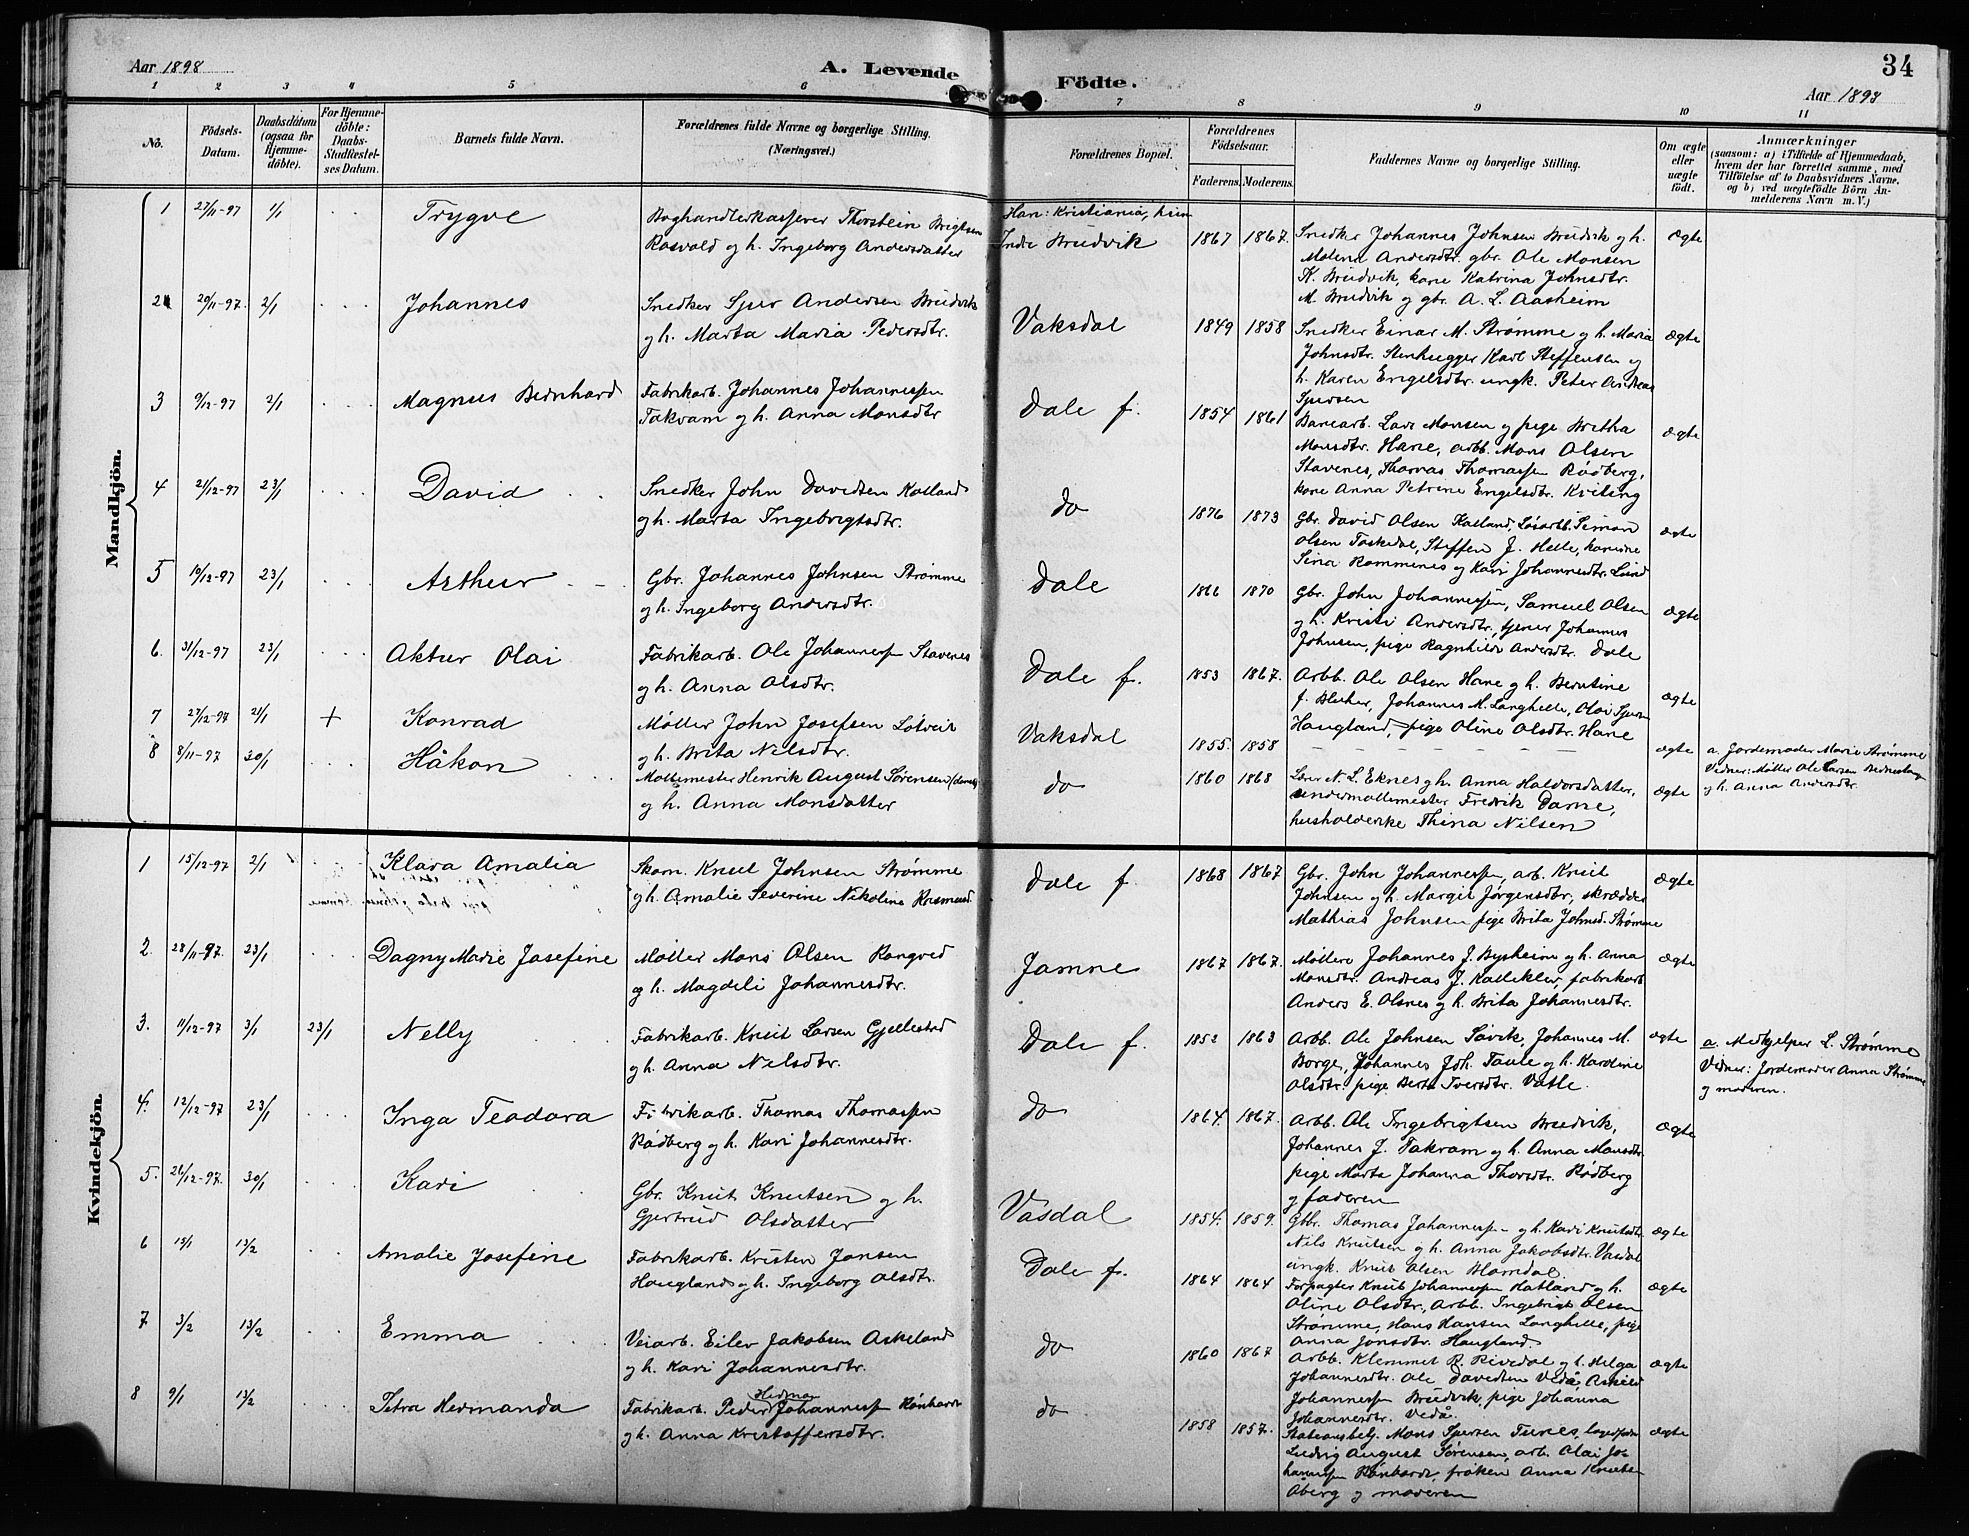 Aar 1898
A. Levende
Födte.
34
Aar 1898
1 2 3 4 5 6 7 8 9 10 11
No.
Födsels-Datum.
Daabsdatum (ogsaa for Hjemme-döbte).
For Hjemme-döbte: Daabs-Stadfæstel-ses Datum.
Barnets fulde Navn.
Forældrenes fulde Navne og borgerlige Stilling.
(Næringsvei.)
Forældrenes Bopæl.
Forældrenes Födselsaar.
Faderens. Moderens.
Faddernes Navne og borgerlige Stilling.
Om ægte eller uægte födt.
Anmærkninger
(saasom: a) i Tilfælde af Hjemmedaab,
hvem der har forrettet samme, med
Tilföielse af to Daabsvidners Navne,
og b) ved uægtefödte Börn An-
melderens Navn m. V.)
Mandkjön.
1 27/11-97 1/1 Trygve
Boghandlerkasserer Thorstein Brigtsen
Rosvold og h. Ingeborg Andersdatter
Han: Kristiania, hun
Indre Bruvik 1867 1867.
Snedker Johannes Johnsen Bruvik og h.
Malene Andersdtr. gbr. Ole Monsen
K. Bruvik, kone Katrina Johnsdtr.
M. Bruvik og gbr. A. L. Aasheim
ægte
2 20/11-97. 2/1 Johannes
Snedker Sjur Andersen Bruvik
og h. Marta Maria Pedersdtr.
Vaksdal 1849 1858
Snedker Einar M. Strømme og h. Maria
Johnsdtr. Stenhugger Karl Steffensen og
h. Karen Engelsdtr. ungk. Peter Andreas
Sjursen
ægte
3 9/12-97 2/1 Magnus Bernhard
Fabrikarb. Johannes Johannessen
Takvam og h. Anna Monsdtr
Dale f. 1854 1861
Banearb. Lars Monsen og pige Britha
Monsdtr. Hane, arbb. Mons Olsen
Stavenes, Thomas Thomassen Rødberg,
kone Anna Petrine Engelsdtr. Kviting
ægte
4 21/12-97 23/1 David
Snedker John Davidsen Kalland
og h. Marta Ingebrigtsdtr.
do 1876 1873
Gbr. David Olsen Kalland, Løsarb. Simon
Olsen Toskedal, Steffen J. Helle, konerne
Sina Rommenes og Kari Johannesdtr. Lund
ægte
5 10/12-97 23/1 Arthur
Gbr. Johannes Johnsen Strømme
og h. Ingeborg Andersdtr.
Dale 1866 1870
Gbr. John Johannessen, Samuel Olsen
og h. Kristi Andersdtr., tjener Johannes
Johnsen, pige Ragnhilda Andersdtr. Dale
ægte
6. 31/12-97 23/1 Aktur Olai
Fabrikarb. Ole Johannessen Stavenes
og h. Anna Olsdtr.
Dale f. 1853 1867.
Arbb. Ole Olsen Hane og h. Berntine
f. Bleker, Johannes M. Langhelle, Olai Sjursen
Haugland, pige Oline Olsdtr. Hane
ægte
7 27/12-97 21/1 + Konrad
Møller John Josefsen Lotveit
og h. Brita Nilsdtr.
Vaksdal 1855. 1858
ægte
a. Jordemoder Marie Strømme
Vidner: Møller Ole Larsen
og h. Anna Andersdtr.
8 8/11-97 30/1 Håkon
Møllemester Henrik August Sørensen (dansk)
og h. Anna Monsdatter
do 1860 1868
Lærer N. L. Eknes og h. Anna Haldorsdatter,
undermøllemester Fredrik Dame,
husholderske Thina Nilsen
ægte
Kvindekjön.
1 15/12-97 2/1 Klara Amalia
Skom. Knut Johnsen Strømme
og h. Amalie Severine Nikoline Rasmusd.
Dale f. 1868 1867
Gbr. John Johannessen, arb. Knut
Johnsen og h. Margit Jørgensdtr, skrædder
Mathias Johnsen pige Brita Johnsd. Strømme
ægte
2. 28/11-97. 23/1 Dagny Marie Josefine
Møller Mons Olsen Rongved
og h. Magdeli Johannesdtr.
Jamne 1867 1867.
Møllere Johannes J. Bysheim og h. Anna
Monsdtr. Andreas J. Kallekleiv, fabrikarb.
Anders E. Olsnes og h. Brita Johannesdtr.
ægte
3. 11/12-97 3/1 23/1 Nelly
Fabrikarb. Knut Larsen Gjellestad
og h. Anna Nelsdtr.
Dale f. 1852 1863
Arbb. Ole Johnsen Søvik, Johannes M.
Borge, Johannes Joh. Taule og h. Karoline
Olsdtr. pige Berta Iversdtr. Vatle.
ægte
a. Medhjelper L. Strømme
Vidner: Jordemoder Anna Strømme
og moderen.
4. 12/12-97 23/1 Inga Teodora
Fabrikarb. Thomas Thomassen
Rødberg og h. Kari Johannesdtr.
do 1864. 1867.
Arbb. Ole Ingebrigtsen Bruvik,
Johannes J. Takvam og h. Anna Monsdtr.
pige Marta Johanna Thorsdtr. Rødberg
og faderen
ægte
5. 26/12-97. 30/1 Kari
Gbr. Knut Knutsen og h.
Gjertrud Olsdatter
Vasdal 1854. 1859.
Gbr. Thomas Johannessen og h. Kari Knutsdtr
Nils Knutsen og h. Anna Jakobsdtr. Vasdal
ungk. Knut Olsen
ægte
6 13/1 13/2 Amalie Josefine
Fabrikarb. Kristen Jansen
Haugland og h. Ingeborg Olsdtr.
Dale f. 1864 1864
Forpagter Knut Johannessen Hatland og h.
Oline Olsdtr, Arbb. Ingebrigt Olsen
Strømme, Hans Hansen Langhelle, pige
Anna Jonsdtr. Haugland
ægte
7 3/2 13/2 Emma
Veiarb. Eilev Jakobsen Askeland
og h. Kari Johannesdtr.
do 1860 1867
Arbb. Klemmet R. Rivedal og h. Helga
Johannesdtr. Ole Davidsen Vedå, Askild
Johannessen Bruvik, pige Johanna
Johannesdtr. Vedå.
ægte
8 9/1 13/2 Petra Hermanda
Fabrikarb. Peder Herman Johannessen Rønhovde
og h. Anna Kristoffersdtr.
do 1858 1857.
Stationsbetj. Mons Sjursen Furnes, lagerform.
Ludvig August Sørensen, arb. Olai Jo-
hannessen Rønhovde, frøken Anna Knuts.
Åberg og moderen
ægte